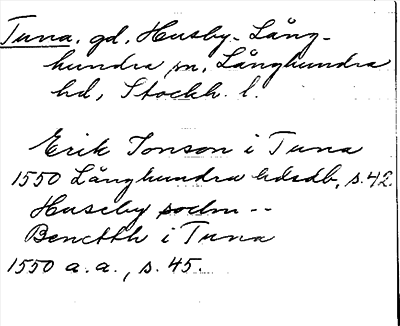 Tuna. gd. Husby-Lång-
hundra sn, Långhundra
hd, Stockh. l.
Erik Jonson i Tuna
1550 Långhundra hdsdb, s. 42.
Huseby sochn --
Benctth i Tuna
1550 a.a., s. 45.